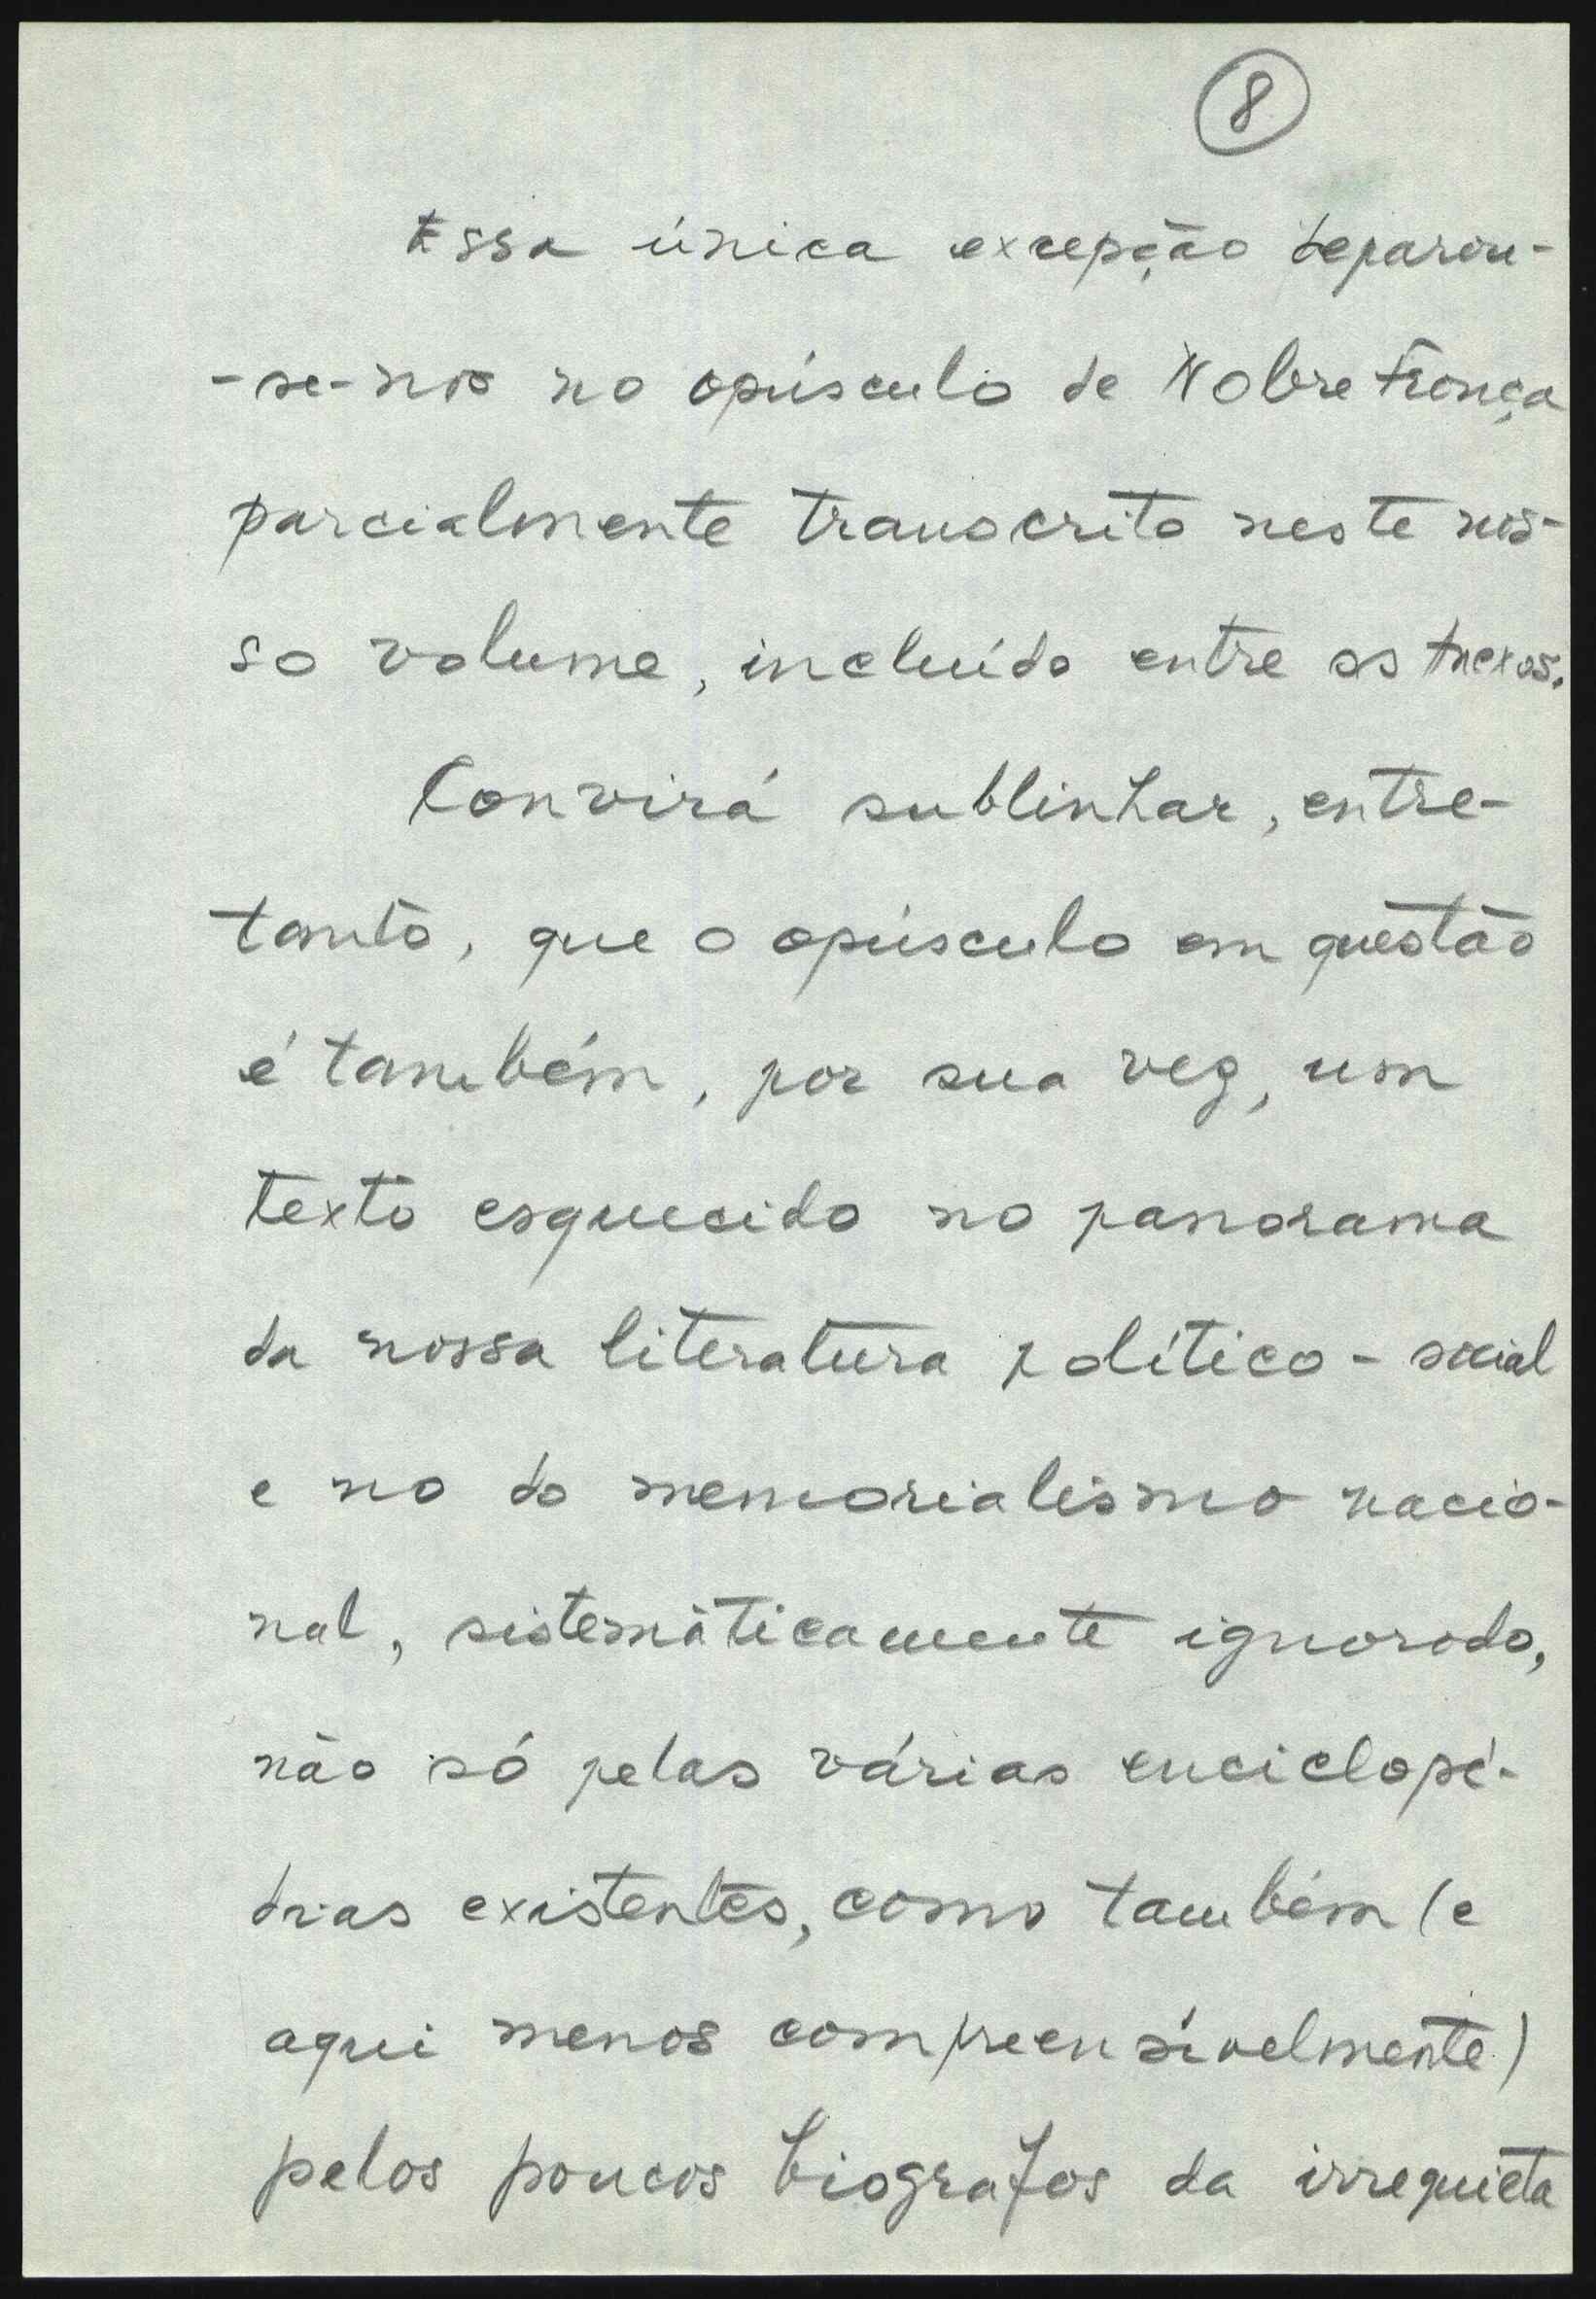 8
Essa única excepção deparou-
-se-nos no opúsculo de Nobre França
parcialmente transcrito neste nos-
so volume, incluído entre os Anexos.
Convirá sublinhar, entre-
tanto, que o opúsculo em questão
é também, por sua vez, um
texto esquecido no panorama
da nossa literatura político-social
e no do memorialismo nacio-
nal, sistemàticamente ignorado,
não só pelas várias enciclopé-
dias existentes, como também (e
aqui menos compreensìvelmente)
pelos poucos biografos da irrequieta